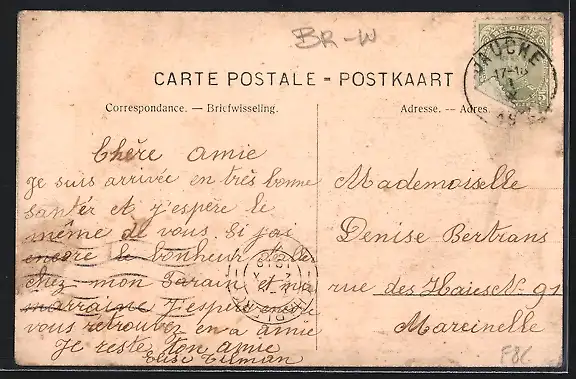 BR-W
JAUCHE
17-18
BELGIQUE
CARTE POSTALE - POSTKAART
Correspondance. — Briefwisseling.
Adresse. — Adres.
Chère amie
Je suis arrivée en très bonne
santér et j'espère le
même de vous. Si j'ai
encore le bonheur d'aller
chez mon Parain et ma
marraine J'espère encore
vous retrouvez en a amie
Je reste ton amie
Elise Tilman
Mademoiselle
Denise Bertrans
rue des Haies N. 91
Marcinelle